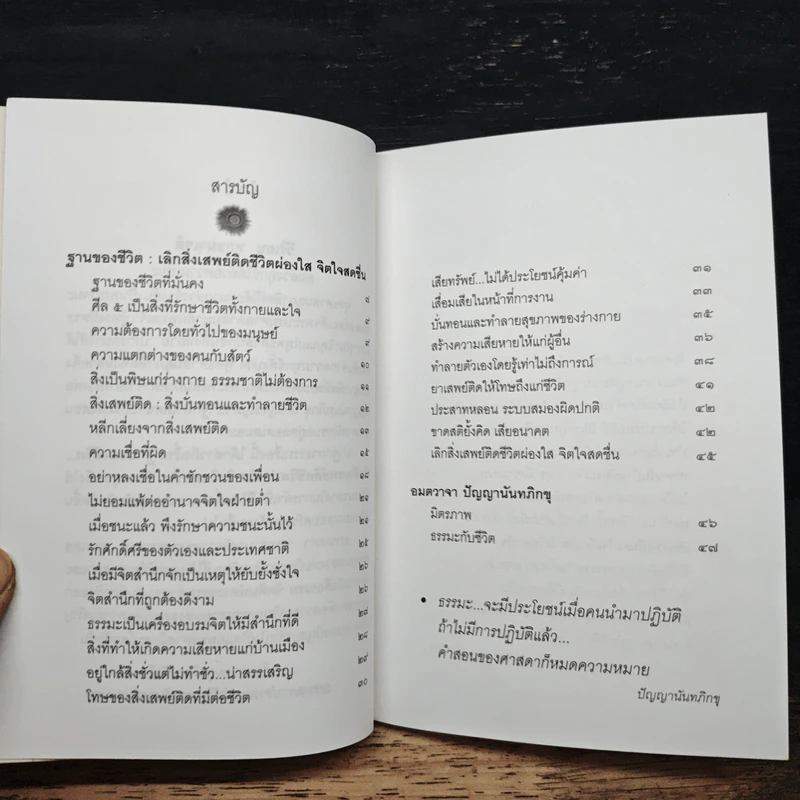 สารบัญ
ฐานของชีวิต : เลิกสิ่งเสพย์ติดชีวิตผ่องใส จิตใจสดชื่น
ฐานของชีวิตที่มั่นคง ๘
ศีล ๕ เป็นสิ่งที่รักษาชีวิตทั้งกายและใจ ๙
ความต้องการโดยทั่วไปของมนุษย์ ๙
ความแตกต่างของคนกับสัตว์ ๑๐
สิ่งเป็นพิษแก่ร่างกาย ธรรมชาติไม่ต้องการ ๑๑
สิ่งเสพย์ติด : สิ่งบั่นทอนและทำลายชีวิต ๑๒
หลีกเลี่ยงจากสิ่งเสพย์ติด ๑๓
ความเชื่อที่ผิด ๑๕
อย่าหลงเชื่อในคำชักชวนของเพื่อน ๑๘
ไม่ยอมแพ้ต่ออำนาจจิตใจฝ่ายต่ำ ๒๑
เมื่อชนะแล้ว พึงรักษาความชนะนั้นไว้ ๒๑
รักศักดิ์ศรีของตัวเองและประเทศชาติ ๒๕
เมื่อมีจิตสำนึกจักเป็นเหตุให้ยับยั้งชั่งใจ ๒๖
จิตสำนึกที่ถูกต้องดีงาม ๒๖
ธรรมะเป็นเครื่องอบรมจิตให้มีสำนึกที่ดี ๒๗
สิ่งที่ทำให้เกิดความเสียหายแก่บ้านเมือง ๒๘
อยู่ใกล้สิ่งชั่วแต่ไม่ทำชั่ว...น่าสรรเสริญ ๒๙
โทษของสิ่งเสพย์ติดที่มีต่อชีวิต ๓๐
เสียทรัพย์...ไม่ได้ประโยชน์คุ้มค่า ๓๑
เสื่อมเสียในหน้าที่การงาน ๓๓
บั่นทอนและทำลายสุขภาพของร่างกาย ๓๕
สร้างความเสียหายให้แก่ผู้อื่น ๓๖
ทำลายตัวเองโดยรู้เท่าไม่ถึงการณ์ ๓๘
ยาเสพย์ติดให้โทษถึงแก่ชีวิต ๔๑
ประสาทหลอน ระบบสมองผิดปกติ ๔๒
ขาดสติยั้งคิด เสียอนาคต ๔๒
เลิกสิ่งเสพย์ติดชีวิตผ่องใส จิตใจสดชื่น ๔๕
อมตวาจา ปัญญานันทภิกขุ
มิตรภาพ ๔๖
ธรรมะกับชีวิต ๔๗
• ธรรมะ...จะมีประโยชน์เมื่อคนนำมาปฏิบัติ
ถ้าไม่มีการปฏิบัติแล้ว...
คำสอนของศาสดาก็หมดความหมาย
ปัญญานันทภิกขุ